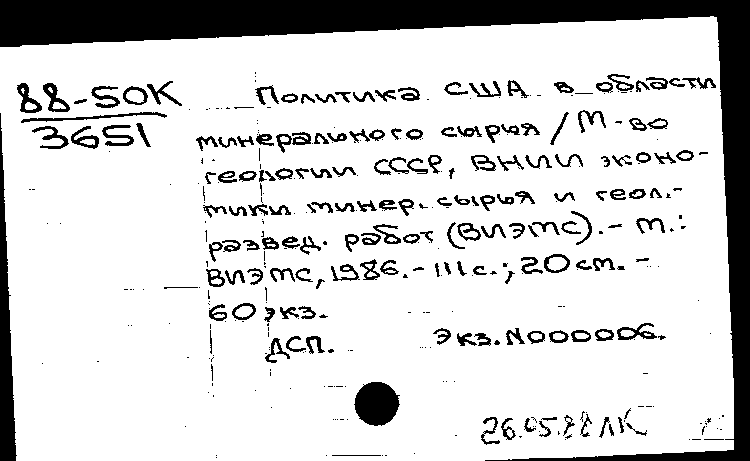 88-50К
3651
Политика США в области
минерального сырья / М-во
геологии СССР, ВНИИ эконо-
мики минер. сырья и геол.-
развед. работ (ВИЭМС). - М.:
ВИЭМС, 1986. - 111 с.; 20 см. -
60 экз.
ДСП. Экз. N000006.
26.05.88 ЛК